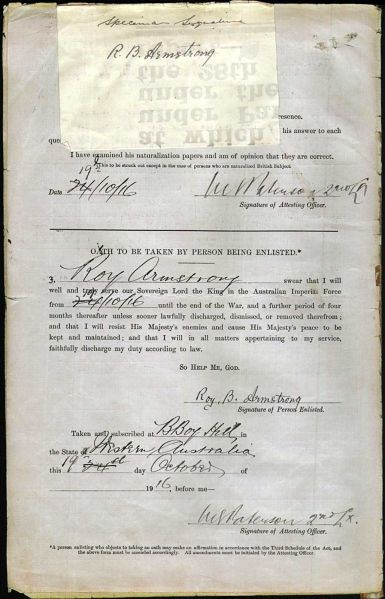 Specimen Signature
R. B. Armstrong
the 28th
under the
under Par
at which
resence.
his answer to each
que
I have examined his naturalization papers and am of opinion that they are correct.
*This to be struck out except in the case of persons who are naturalized British Subject
19
Date 24/10/16
2nd Lt
Signature of Attesting Officer.
OATH TO BE TAKEN BY PERSON BEING ENLISTED.*
3, Roy Armstrong swear that I will
well and truly serve our Sovereign Lord the King in the Australian Imperial Force
from 24/10/16 until the end of the War, and a further period of four
months thereafter unless sooner lawfully discharged, dismissed, or removed therefrom;
and that I will resist His Majesty's enemies and cause His Majesty's peace to be
kept and maintained; and that I will in all matters appertaining to my service,
faithfully discharge my duty according to law.
SO HELP ME, GOD.
Roy. B. Armstrong
Signature of Person Enlisted.
Taken and subscribed at BBoy Hill in
the State of Western Australia
this 19th 24th day October of
1916, before me—
2nd Lt.
Signature of Attesting Officer.
*A person enlisting who objects to taking an oath may make an affirmation in accordance with the Third Schedule of the Act, and
the above form must be amended accordingly. All amendments must be initialled by the Attesting Officer.